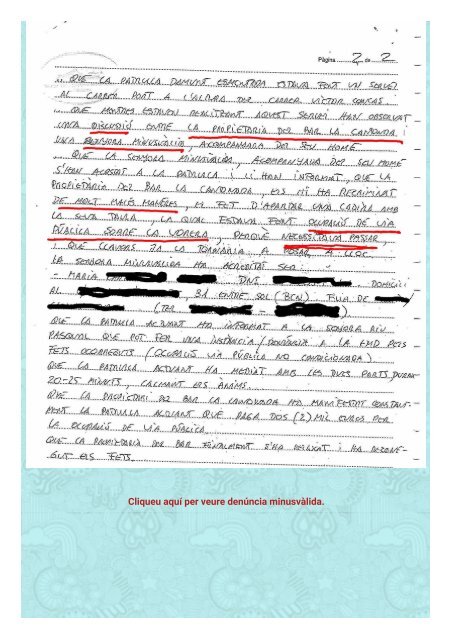 Pàgina 2 de 2
.. QUE LA PATRULLA DAMUNT ESMENTADA ESTAVA FENT UN SERVEI
AL CARRER PORT A L'ALÇADA DEL CARRER VICTOR
.. QUE MENTRES ESTAVEN REALITZANT AQUEST SERVEI HAN OBSERVAT
UNA DISCUSIÓ ENTRE LA PROPIETARIA DEL BAR LA CANTONADA I
UNA SENYORA MINUSVÀLIDA, ACOMPANYADA DEL SEU HOME.
.. QUE LA SENYORA MINUSVÀLIDA, ACOMPANYADA DEL SEU HOME
S'HAN ACOSAT A LA PATRULLA I LI HAN INFORMAT, QUE LA
PROPIETÀRIA DEL BAR LA CANTONADA, ELS HI HA RECRIMINAT
DE MOLT MALES MANERES, EL FET D'APARTAR UNA CADIRA AMB
LA SEVA TAULA, LA QUAL ESTAVA FENT OCUPACIÓ DE VIA
PÚBLICA SOBRE LA VORERA, PERQUÈ NECESSITAVA PASSAR,
I QUE LLAVORS JA LA TORNARIA A POSAR A LLOC.
LA SENYORA MINUSVALIDA HA ACREDITAT SER:
MARIA DNI DOMICILI
AL , 31 ENTRE SOL (BCN). FILLA DE
(TER
QUE LA PATRULLA ACTUANT HA INFORMAT A LA SENYORA
PASQUAL QUE POT FER UNA INSTÀNCIA / DENÚNCIA A LA PELS
FETS OCORREGUTS (OCUPACIÓ VIA PÚBLICA NO CONDICIONADA).
QUE LA PATRULLA ACTUANT HA MEDIAT AMB LES DUES PARTS, DURANT
20-25 MINUTS, CALMANT ELS ÀNIMS.
QUE LA PROPIETARI DEL BAR LA CANTONADA HA MANIFESTAT CONSTANT-
MENT LA PATRULLA ACTUANT QUE PAGA DOS (2) MIL EUROS PER
LA OCUPACIÓ DE VIA PÚBLICA.
QUE LA PROPIETARIA DEL BAR FINALMENT S'HA I HA
ELS FETS.
Cliqueu aquí per veure denúncia minusvàlida.